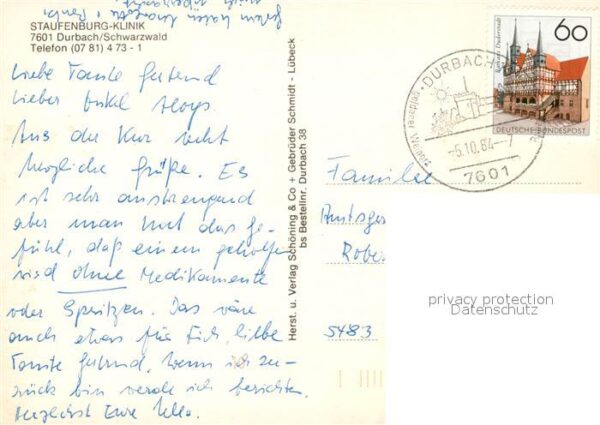 STAUFENBURG-KLINIK
7601 Durbach/Schwarzwald
Telefon (07 81) 4 73 - 1
Liebe Tante Gertrud
lieber Onkel Aloys
Aus der Kur recht
herzliche Grüße. Es
ist sehr anstrengend
aber man hat das Ge-
fühl, daß einem geholfen
wird ohne Medikamente
oder Spritzen. Das wäre
auch etwas für Dich, liebe
Tante Gertrud. Wenn ich zu-
rück bin werde ich berichten.
Herzlichst Eure
Herst. u. Verlag Schöning & Co + Gebrüder Schmidt - Lübeck
bs Bestellnr. Durbach 38
DURBACH
-5.10.84.-7
7601
60
DEUTSCHE BUNDESPOST
Familie
Amtsge
Robe
5483
privacy protection
Datenschutz